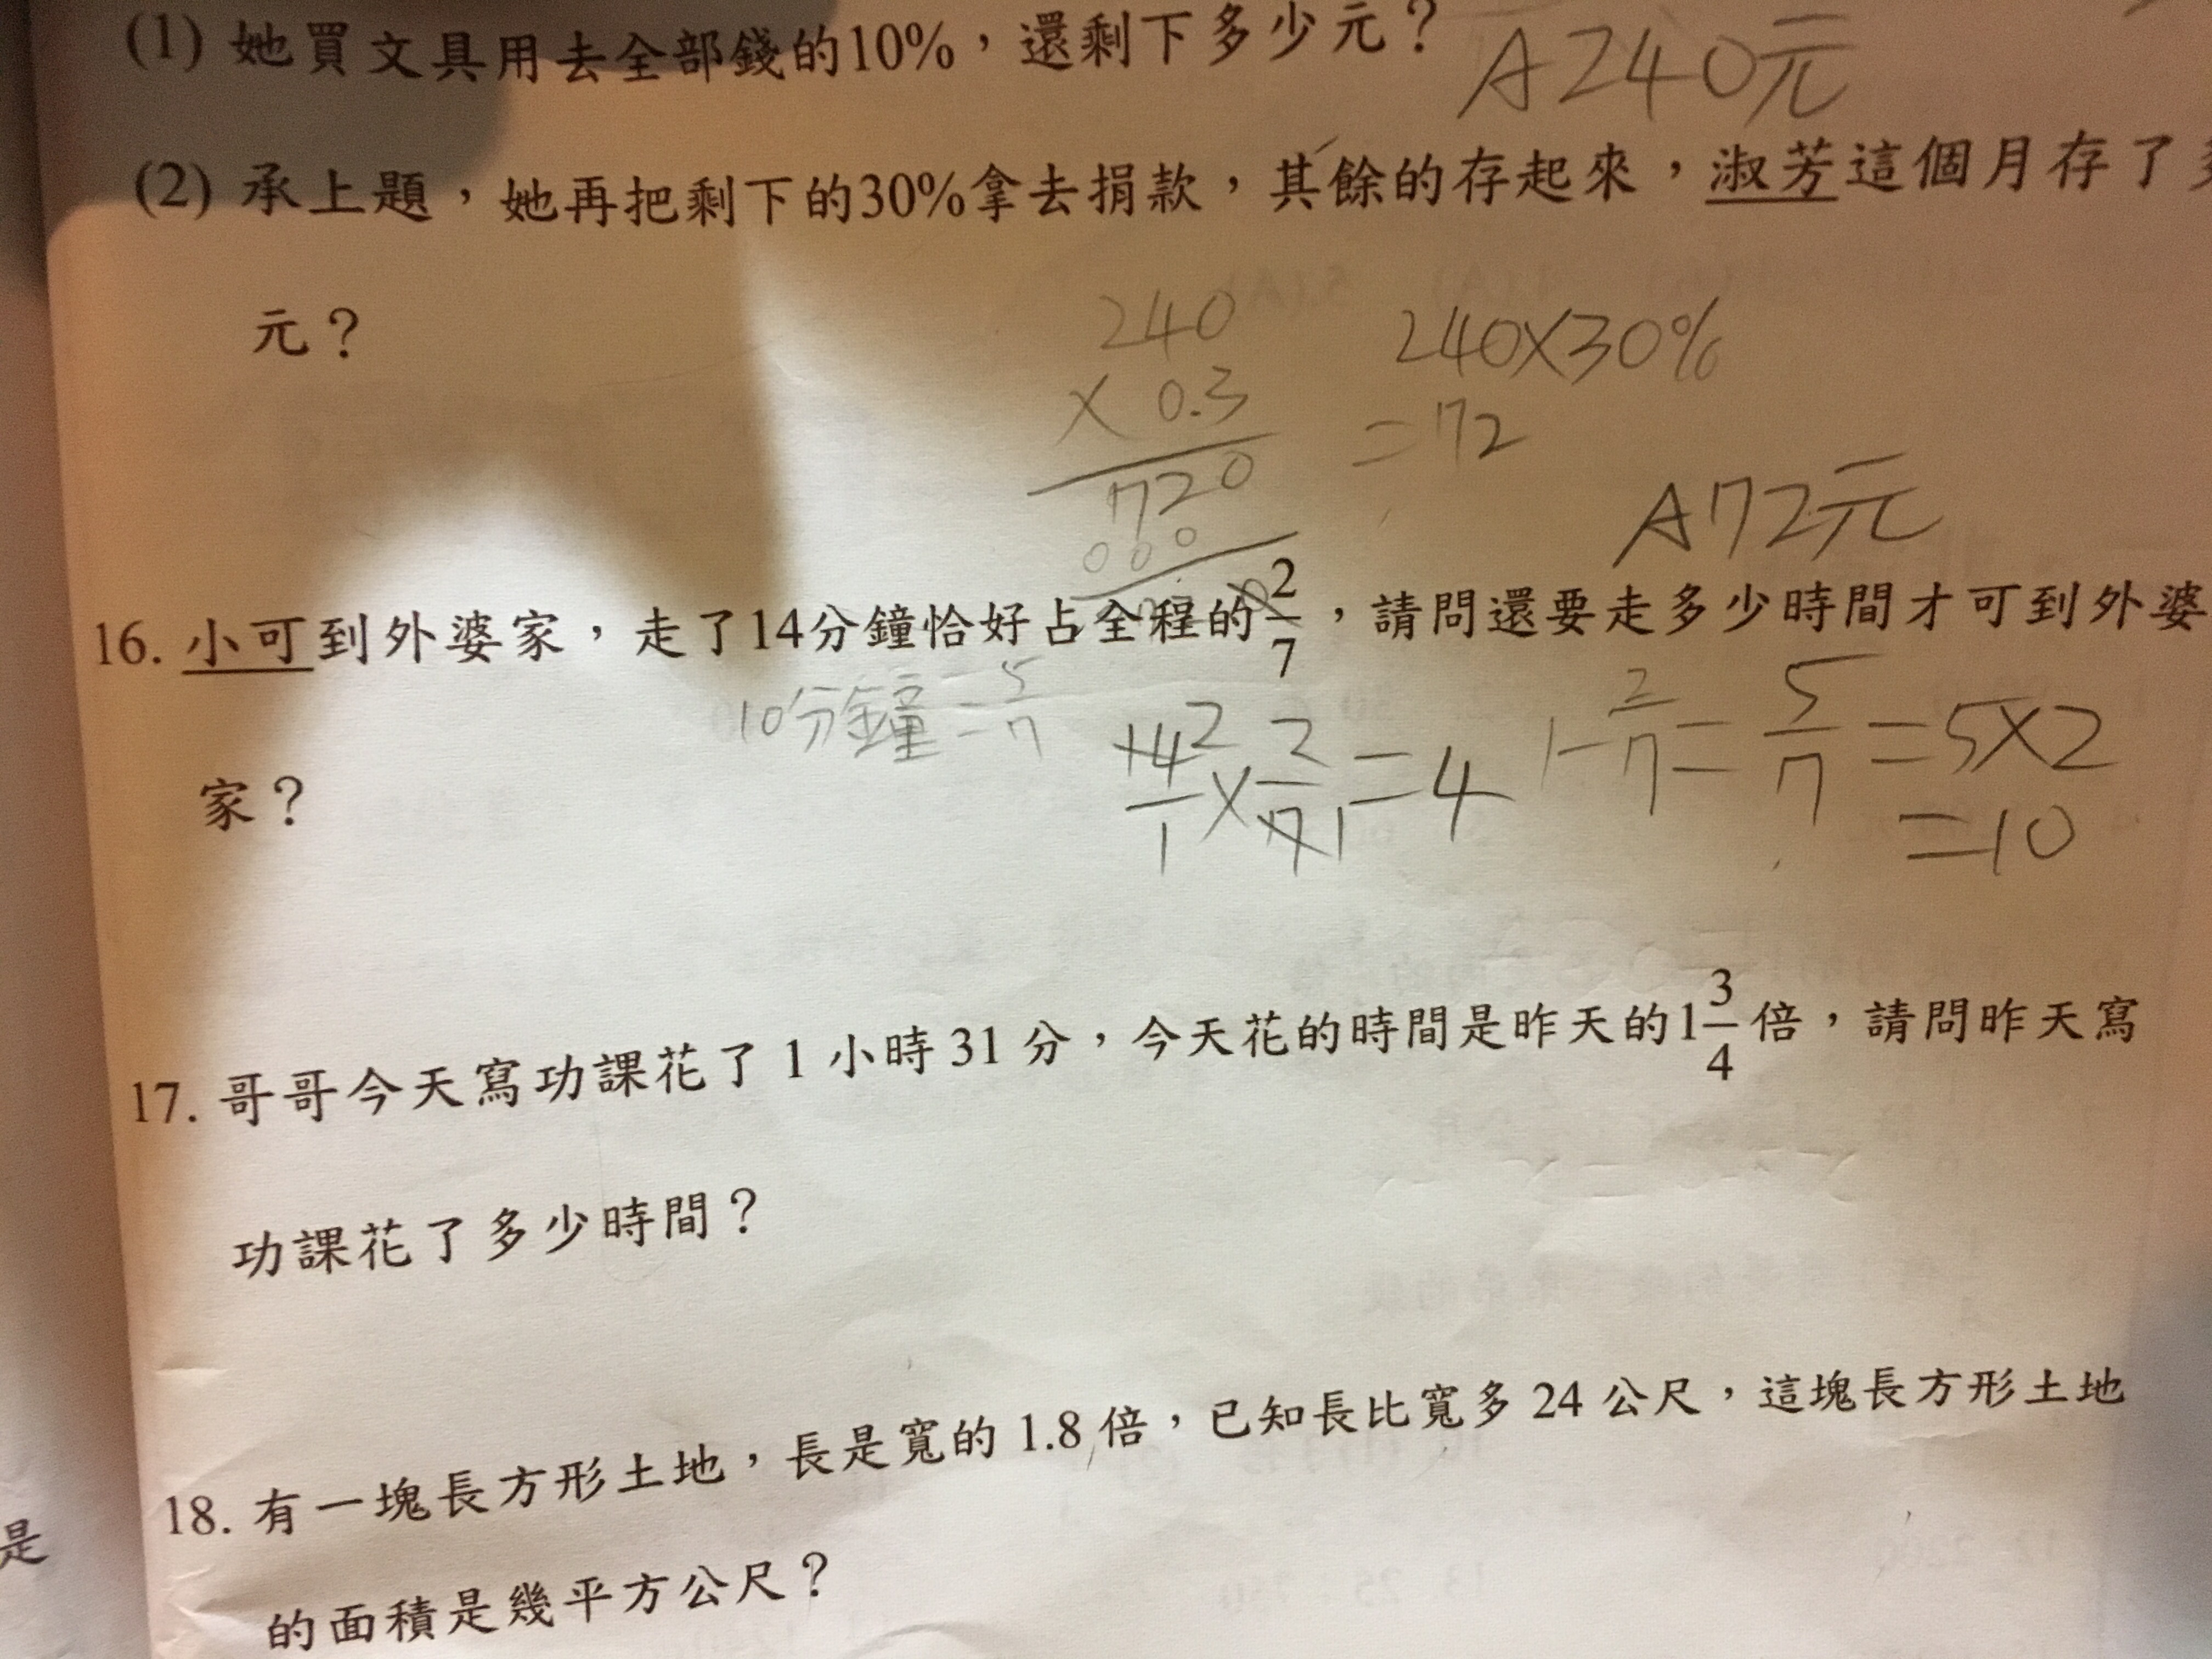 (1) 她買文具用去全部錢的10%，還剩下多少元？ A240元
(2) 承上題，她再把剩下的30%拿去捐款，其餘的存起來，淑芳這個月存了
元？
240
× 0.3
720
000
240×30%
=72
A72元
16. 小可到外婆家，走了14分鐘恰好占全程的2/7，請問還要走多少時間才可到外婆
10分鐘=5/7
14/1 2 × 2/7 1 = 4
1-2/7=5/7=5×2
=10
家？
17. 哥哥今天寫功課花了 1 小時 31 分，今天花的時間是昨天的1 3/4 倍，請問昨天寫
功課花了多少時間？
18. 有一塊長方形土地，長是寬的 1.8 倍，已知長比寬多 24 公尺，這塊長方形土地
的面積是幾平方公尺？
是